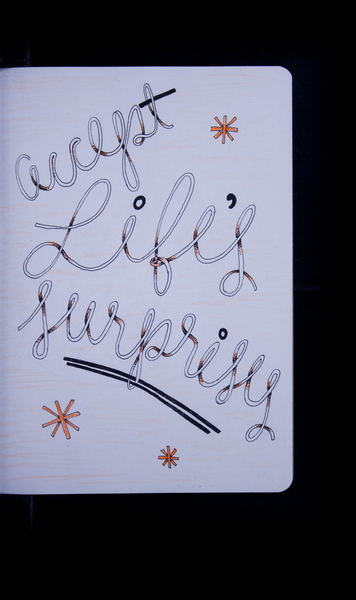 accept
Life's
surprises